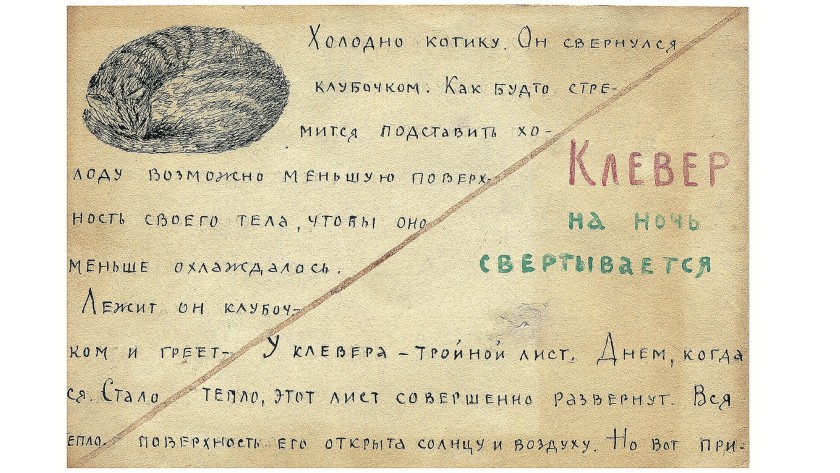 Холодно котику. Он свернулся
клубочком. Как будто стре-
мится подставить хо-
лоду возможно меньшую поверх-
ность своего тела, чтобы оно
меньше охлаждалось.
Лежит он клубоч-
ком и греет-
ся. Стало
епло.
Клевер
на ночь
свертывается
У клевера – тройной лист. Днем, когда
тепло, этот лист совершенно развернут. Вся
поверхность его открыта солнцу и воздуху. Но вот при-